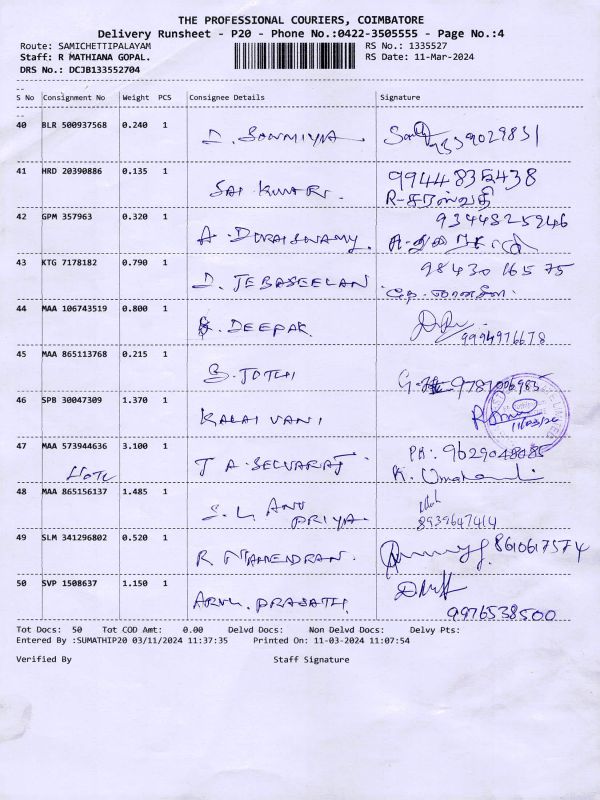 THE PROFESSIONAL COURIERS, COIMBATORE
Delivery Runsheet - P20 - Phone No.:0422-3505555 - Page No.:4
Route: SAMICHETTIPALAYAM RS No.: 1335527
Staff: R MATHIANA GOPAL. RS Date: 11-Mar-2024
DRS No.: DCJB133552704
S No Consignment No Weight PCS Consignee Details Signature
40 BLR 500937568 0.240 1
41 HRD 20390886 0.135 1 SAI KUMAR. 9944835438
R-சரஸ்வதி
42 GPM 357963 0.320 1 A. DURAISWAMY. 9344825946
43 KTG 7178182 0.790 1 D. JEBASEELAN 98430 165 75
44 MAA 106743519 0.800 1 DEEPAK. 9994976678
45 MAA 865113768 0.215 1 B. JOTHI
46 SPB 30047309 1.370 1 KALAI VANI
11/03/24
47 MAA 573944636 3.100 1 T A. SELVARAJ PH: 9629048085
K. Umaha
48 MAA 865156137 1.485 1 S. L ANU PRIYA. 8939647414
49 SLM 341296802 0.520 1 R MAHENDRAN. 8610617574
50 SVP 1508637 1.150 1 ARUL. PRASATH. 9976538500
Tot Docs: 50 Tot COD Amt: 0.00 Delvd Docs: Non Delvd Docs: Delvy Pts:
Entered By :SUMATHIP20 03/11/2024 11:37:35 Printed On: 11-03-2024 11:07:54
Verified By Staff Signature